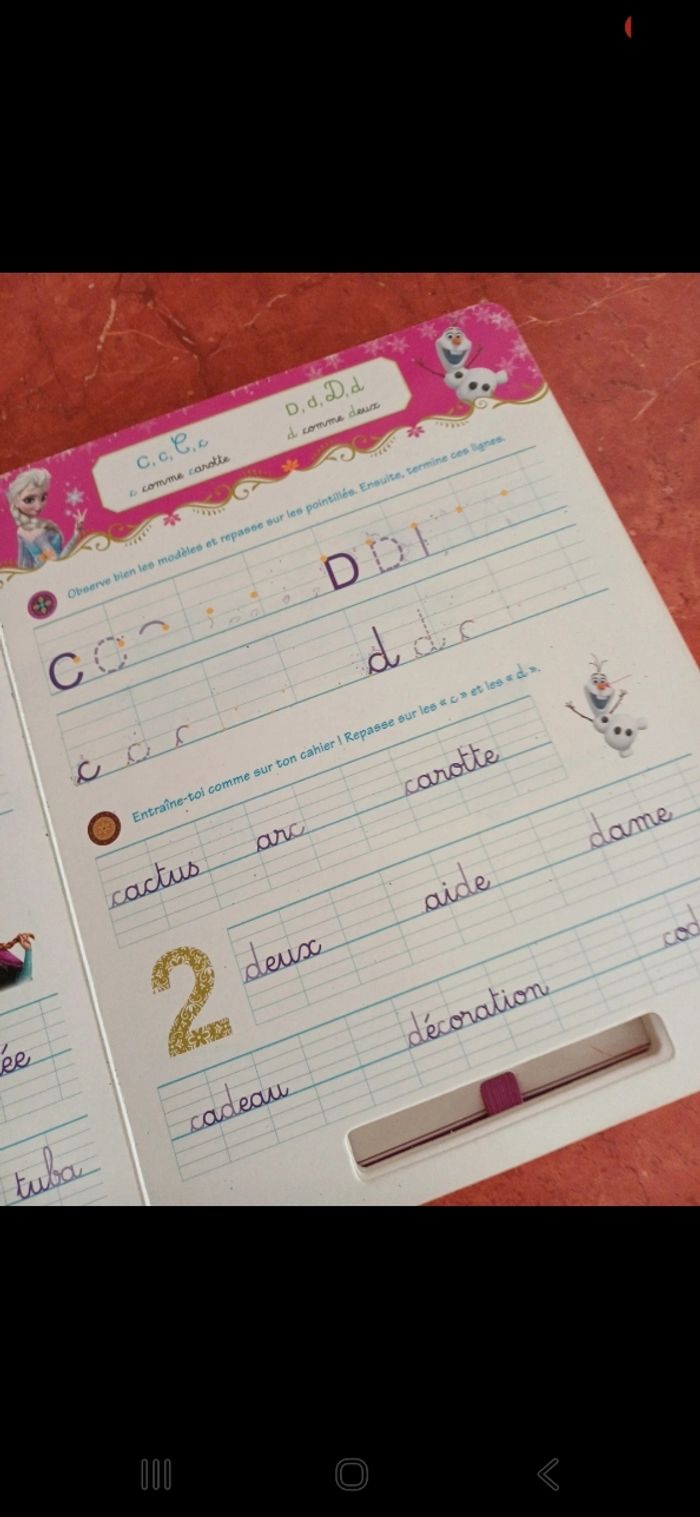 C, c, C, c
c comme carotte
D, d, D, d
d comme deux
Observe bien les modèles et repasse sur les pointillés. Ensuite, termine ces lignes.
C C D D
c c c d d c
Entraîne-toi comme sur ton cahier ! Repasse sur les « c » et les « d ».
cactus arc carotte
2 deux aide dame
cadeau décoration cod
ée
tuba